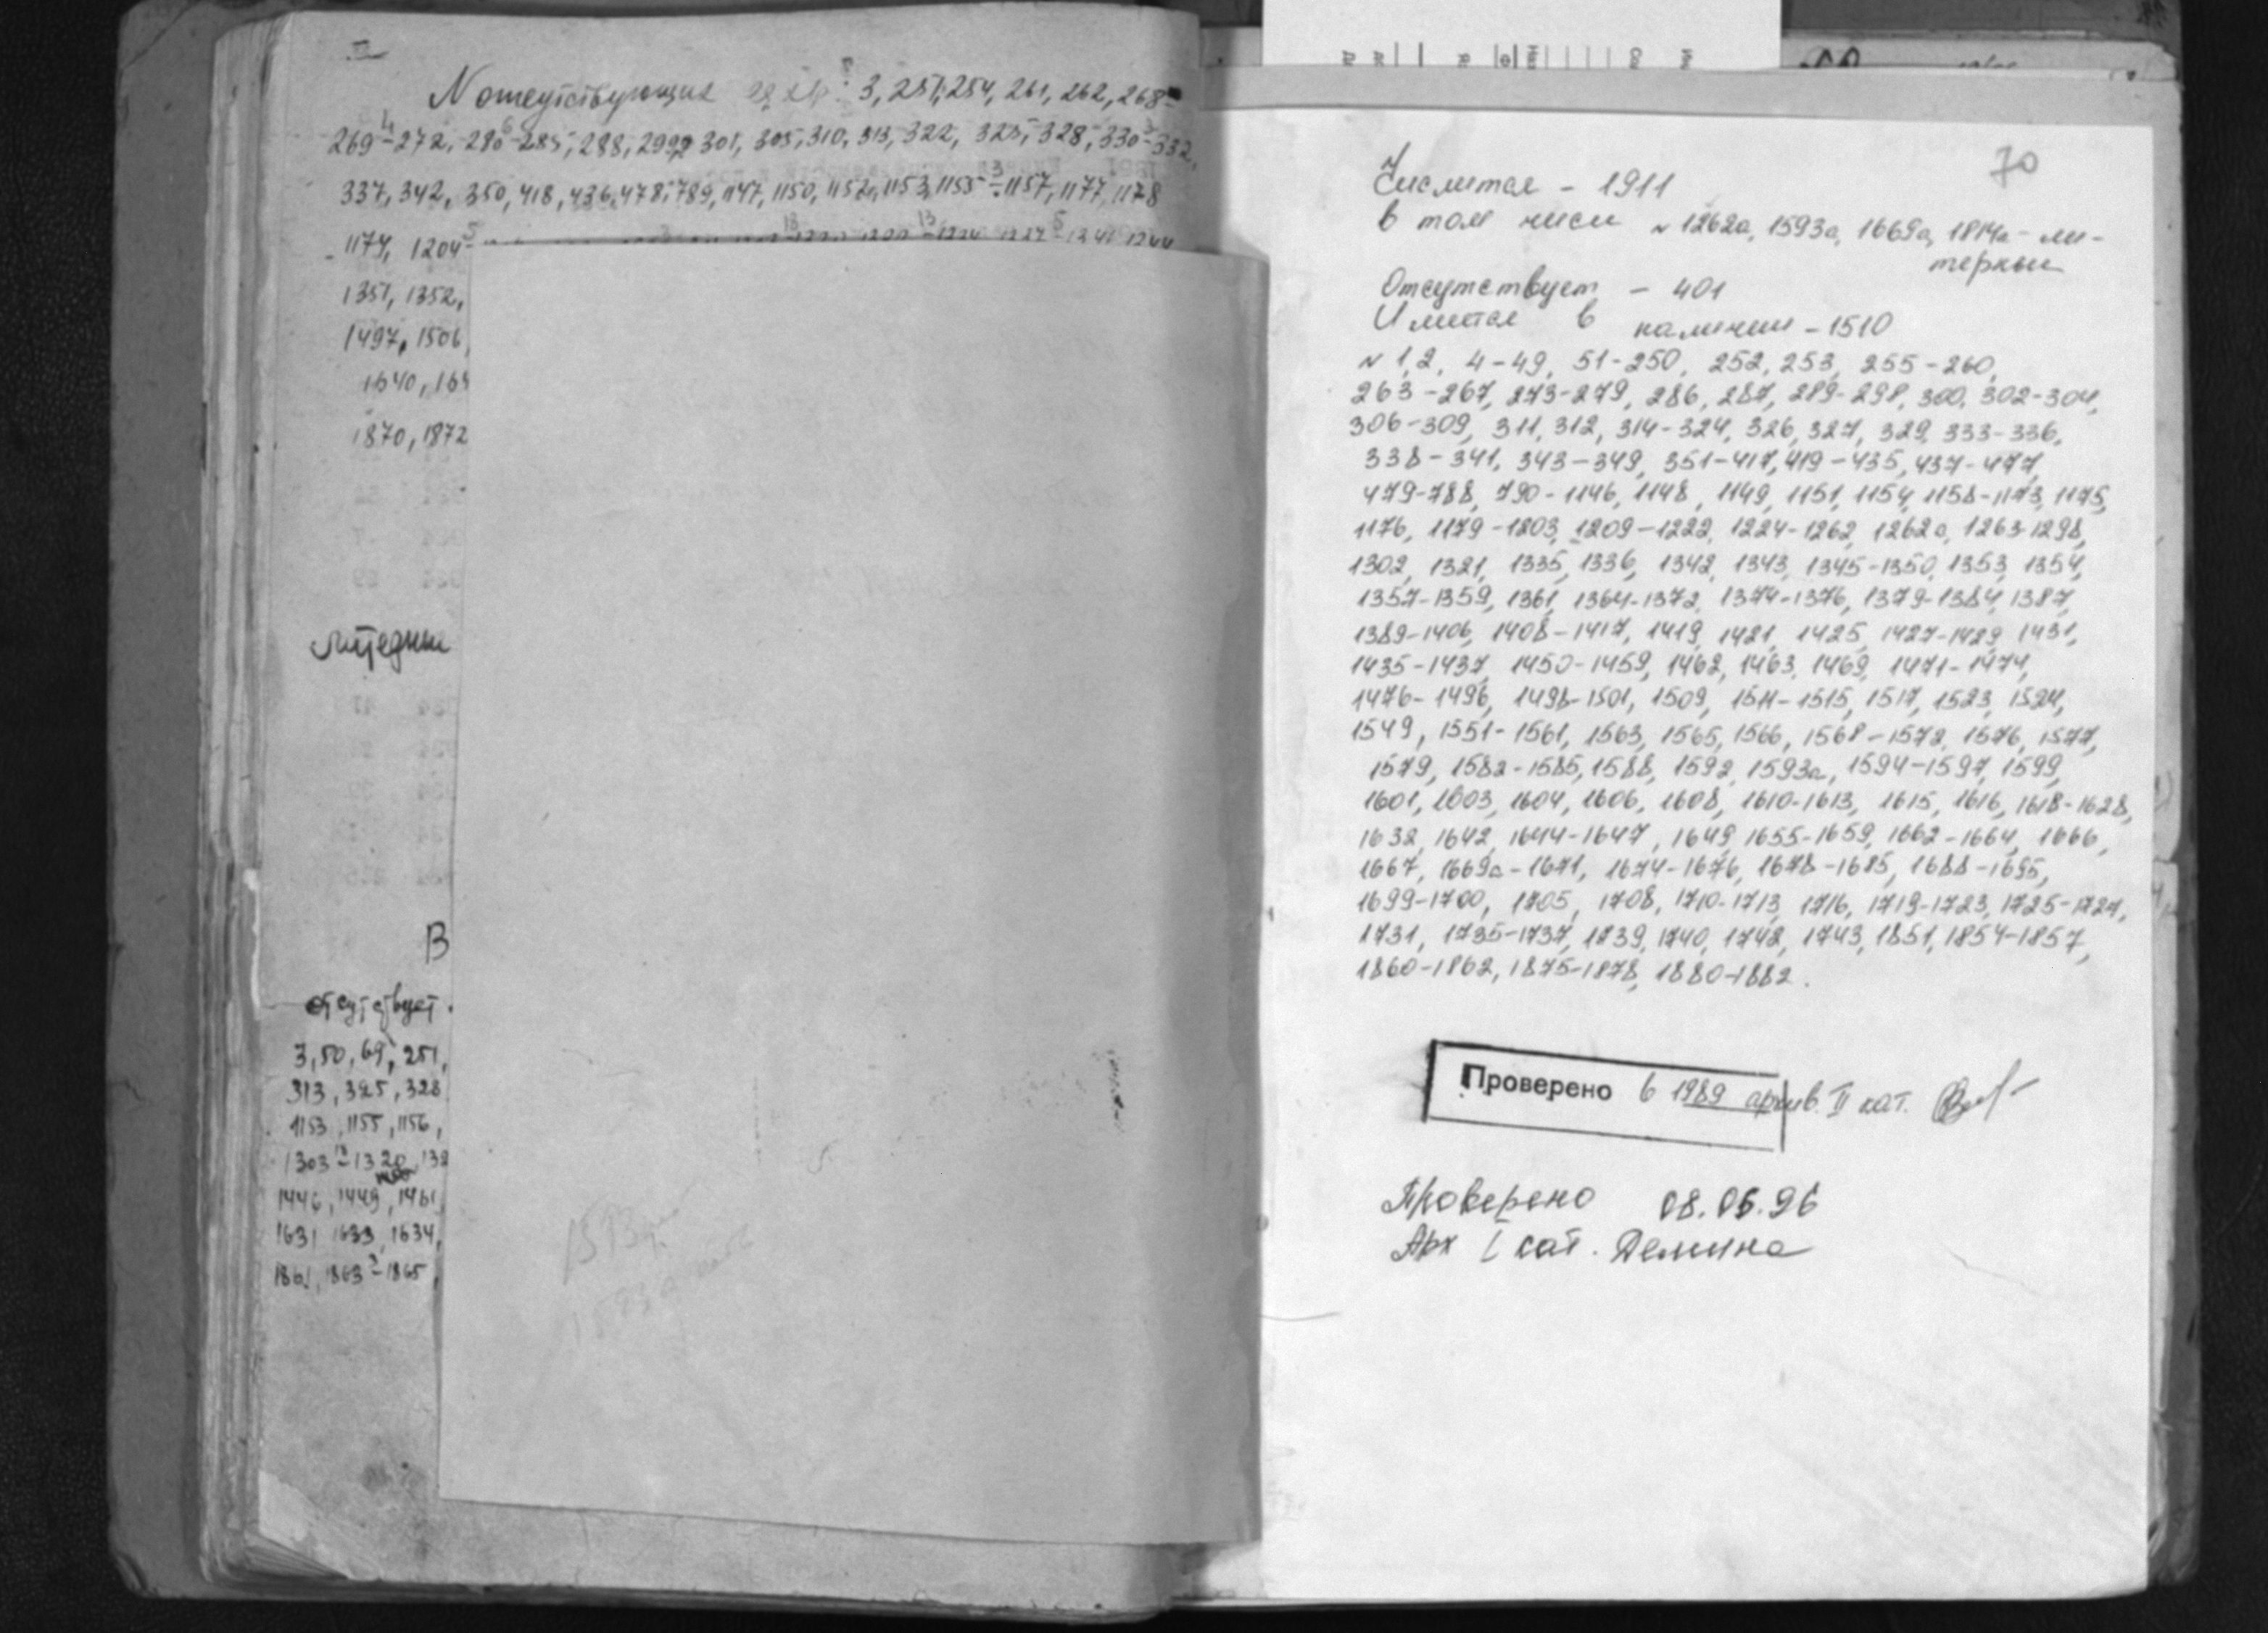 II
N отсутствующих ед. хр: 3, 251, 254, 261, 262, 268-
269-272, 280-285, 288, 299, 301, 305, 310, 313, 322, 325, 328, 330-332,
337, 342, 350, 418, 436, 478, 789, 1147, 1150, 1152, 1153, 1155-1157, 1177, 1178
1174, 1204-
1351, 1352,
1497, 1506,
1640, 164
1870, 1872
Литерные
В
отсутствует
3, 50, 69, 251,
313, 325, 328
1153, 1155, 1156,
1303-1320, 132
1446, 1449, 1461
1631 1633, 1634,
1861, 1863-1865,
70
Числится - 1911
в том числе № 1262а, 1593а, 1669а, 1814а - ли-
терные
Отсутствует - 401
Имеется в наличии - 1510
№ 1, 2, 4-49, 51-250, 252, 253, 255-260,
263-267, 273-279, 286, 287, 289-298, 300, 302-304,
306-309, 311, 312, 314-324, 326, 327, 329, 333-336,
338-341, 343-349, 351-417, 419-435, 437-477,
479-788, 790-1146, 1148, 1149, 1151, 1154, 1158-1173, 1175,
1176, 1179-1203, 1209-1222, 1224-1262, 1262а, 1263-1298,
1302, 1321, 1335, 1336, 1342, 1343, 1345-1350, 1353, 1354,
1357-1359, 1361, 1364-1372, 1374-1376, 1379-1384, 1387,
1389-1406, 1408-1417, 1419, 1421, 1425, 1427-1429, 1431,
1435-1437, 1450-1459, 1462, 1463, 1469, 1471-1474,
1476-1496, 1498-1501, 1509, 1511-1515, 1517, 1523, 1524,
1549, 1551-1561, 1563, 1565, 1566, 1568-1572, 1576, 1577,
1579, 1582-1585, 1588, 1592, 1593а, 1594-1597, 1599,
1601, 1603, 1604, 1606, 1608, 1610-1613, 1615, 1616, 1618-1628,
1632, 1642, 1644-1647, 1649, 1655-1659, 1662-1664, 1666,
1667, 1669а-1671, 1674-1676, 1678-1685, 1688-1695,
1699-1700, 1705, 1708, 1710-1713, 1716, 1719-1723, 1725-1727,
1731, 1735-1737, 1739, 1740, 1742, 1743, 1851, 1854-1857,
1860-1862, 1875-1878, 1880-1882.
Проверено в 1989 архив. II кат.
Проверено 08.05.96
Арх I кат. Демина